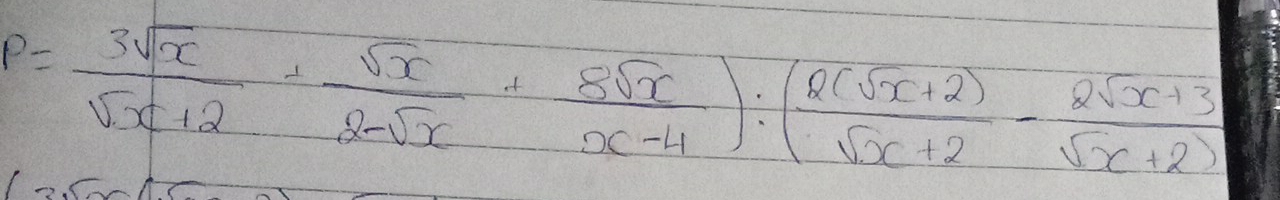 P = 3√x/√x+2 + √x/2-√x + 8√x/x-4) : (2(√x+2)/√x+2 - 2√x+3/√x+2)